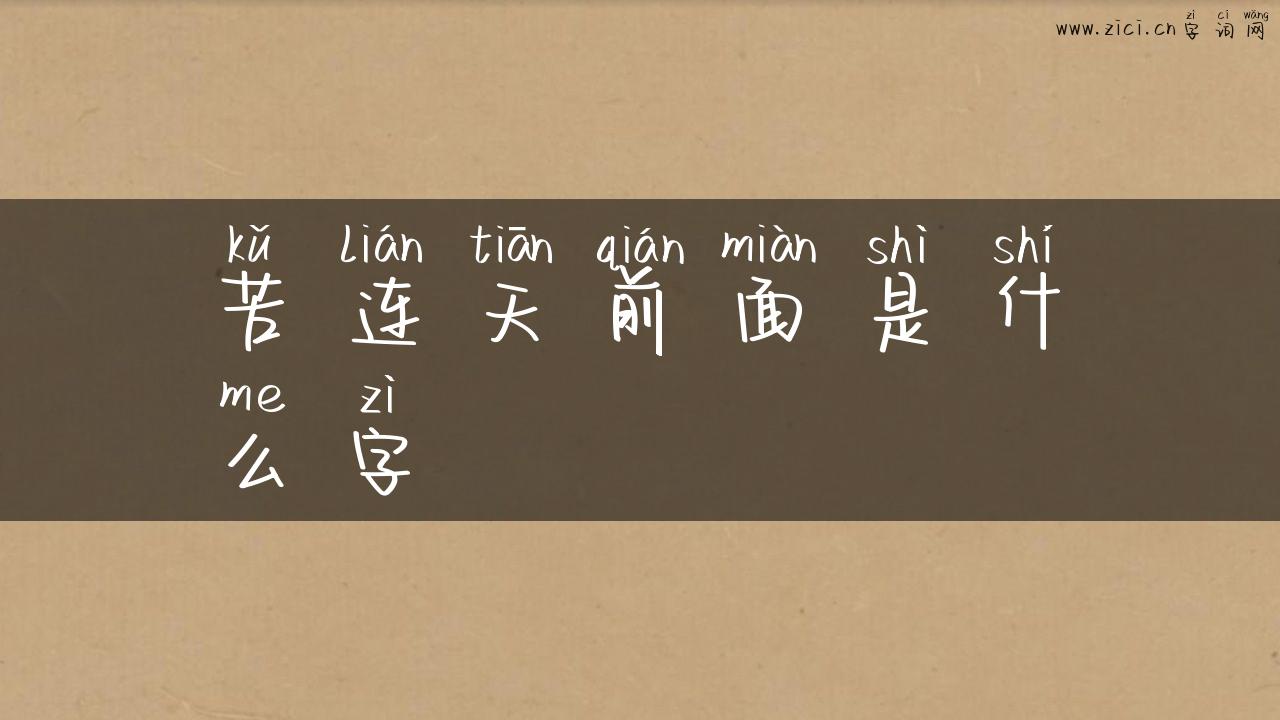 zì cí wǎng
www.zici.cn 字 词 网
kǔ lián tiān qián miàn shì shí
苦 连 天 前 面 是 什
me zì
么 字